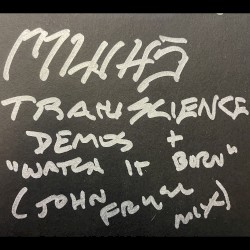 TRANSCIENCE
DEMOS +
"WATCH IT BURN"
(JOHN FRYER MIX)